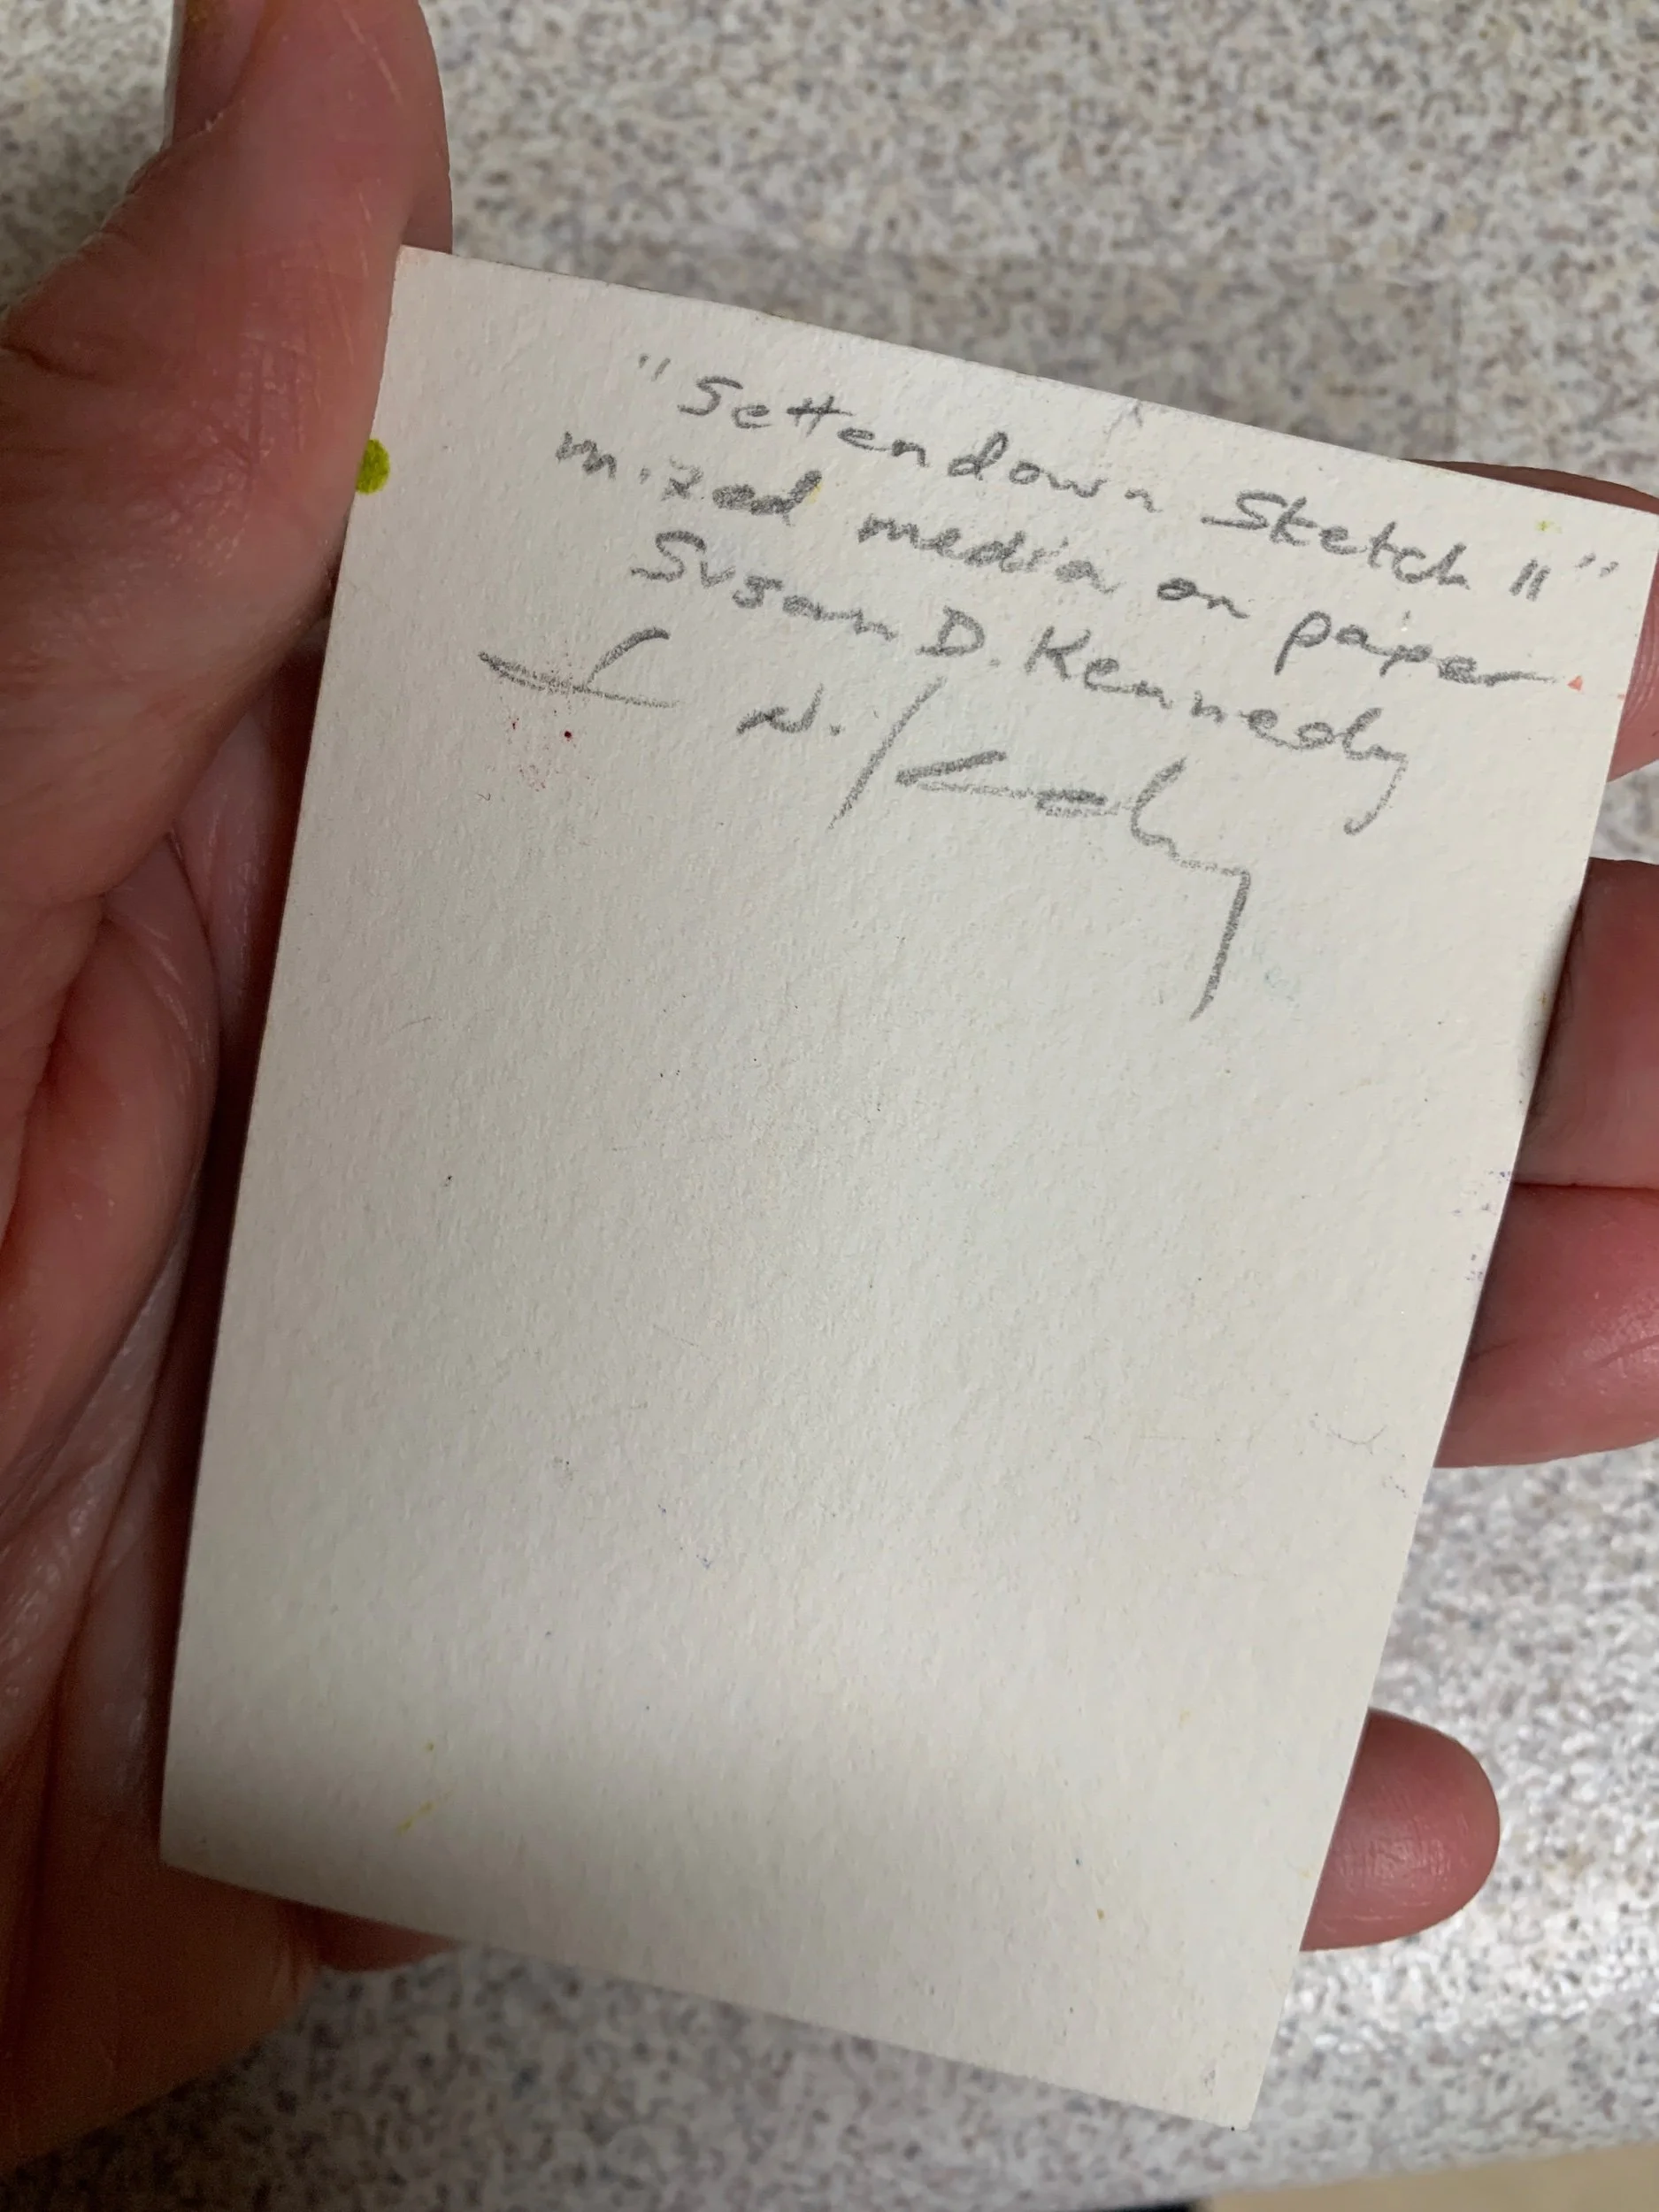 "Settendown Sketch II"
mixed media on paper
Susan D. Kennedy